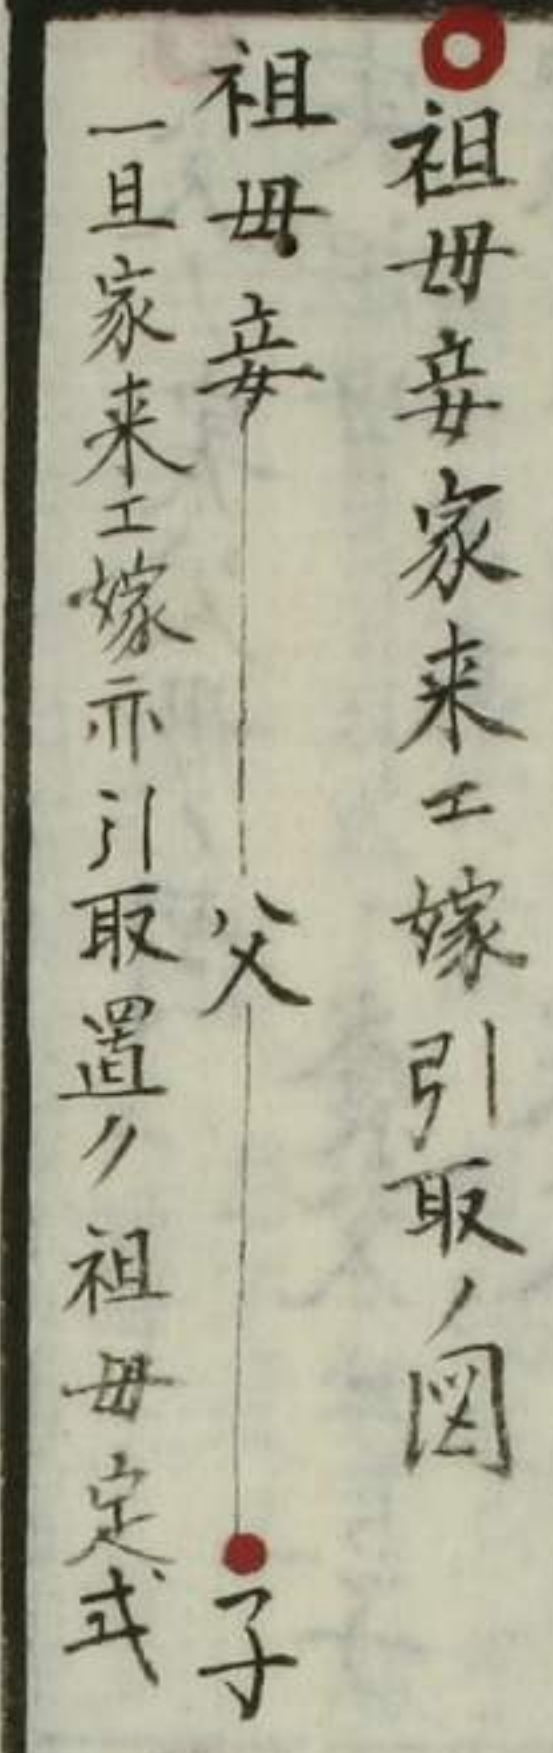 祖母妾家来エ嫁引取ノ図
祖母妾 父 子
一旦家来エ嫁亦引取置ク祖母定式